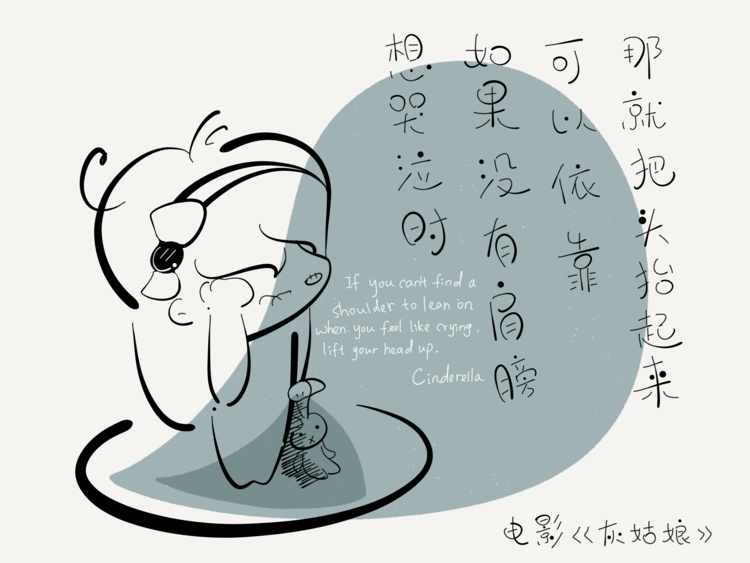 想哭泣时
如果没有肩膀
可以依靠
那就把头抬起来
If you can't find a
shoulder to lean on
when you feel like crying,
lift your head up.
Cinderella
电影《灰姑娘》